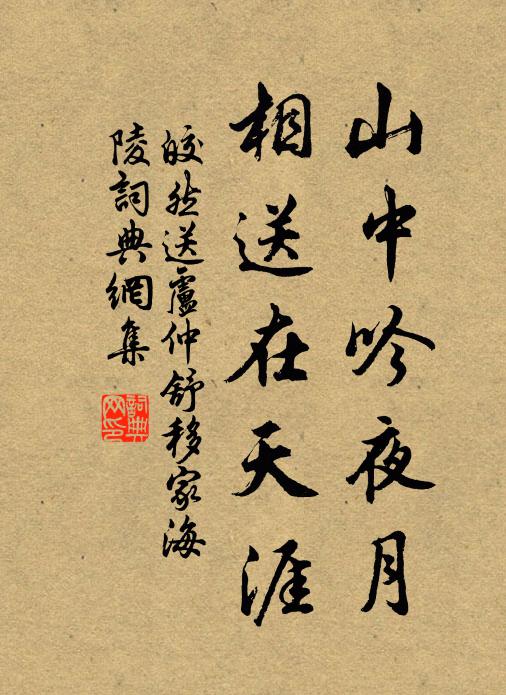 山中吟夜月
相送在天涯
皎然送盧仲舒移家海
陵詞典網集
詞典網印